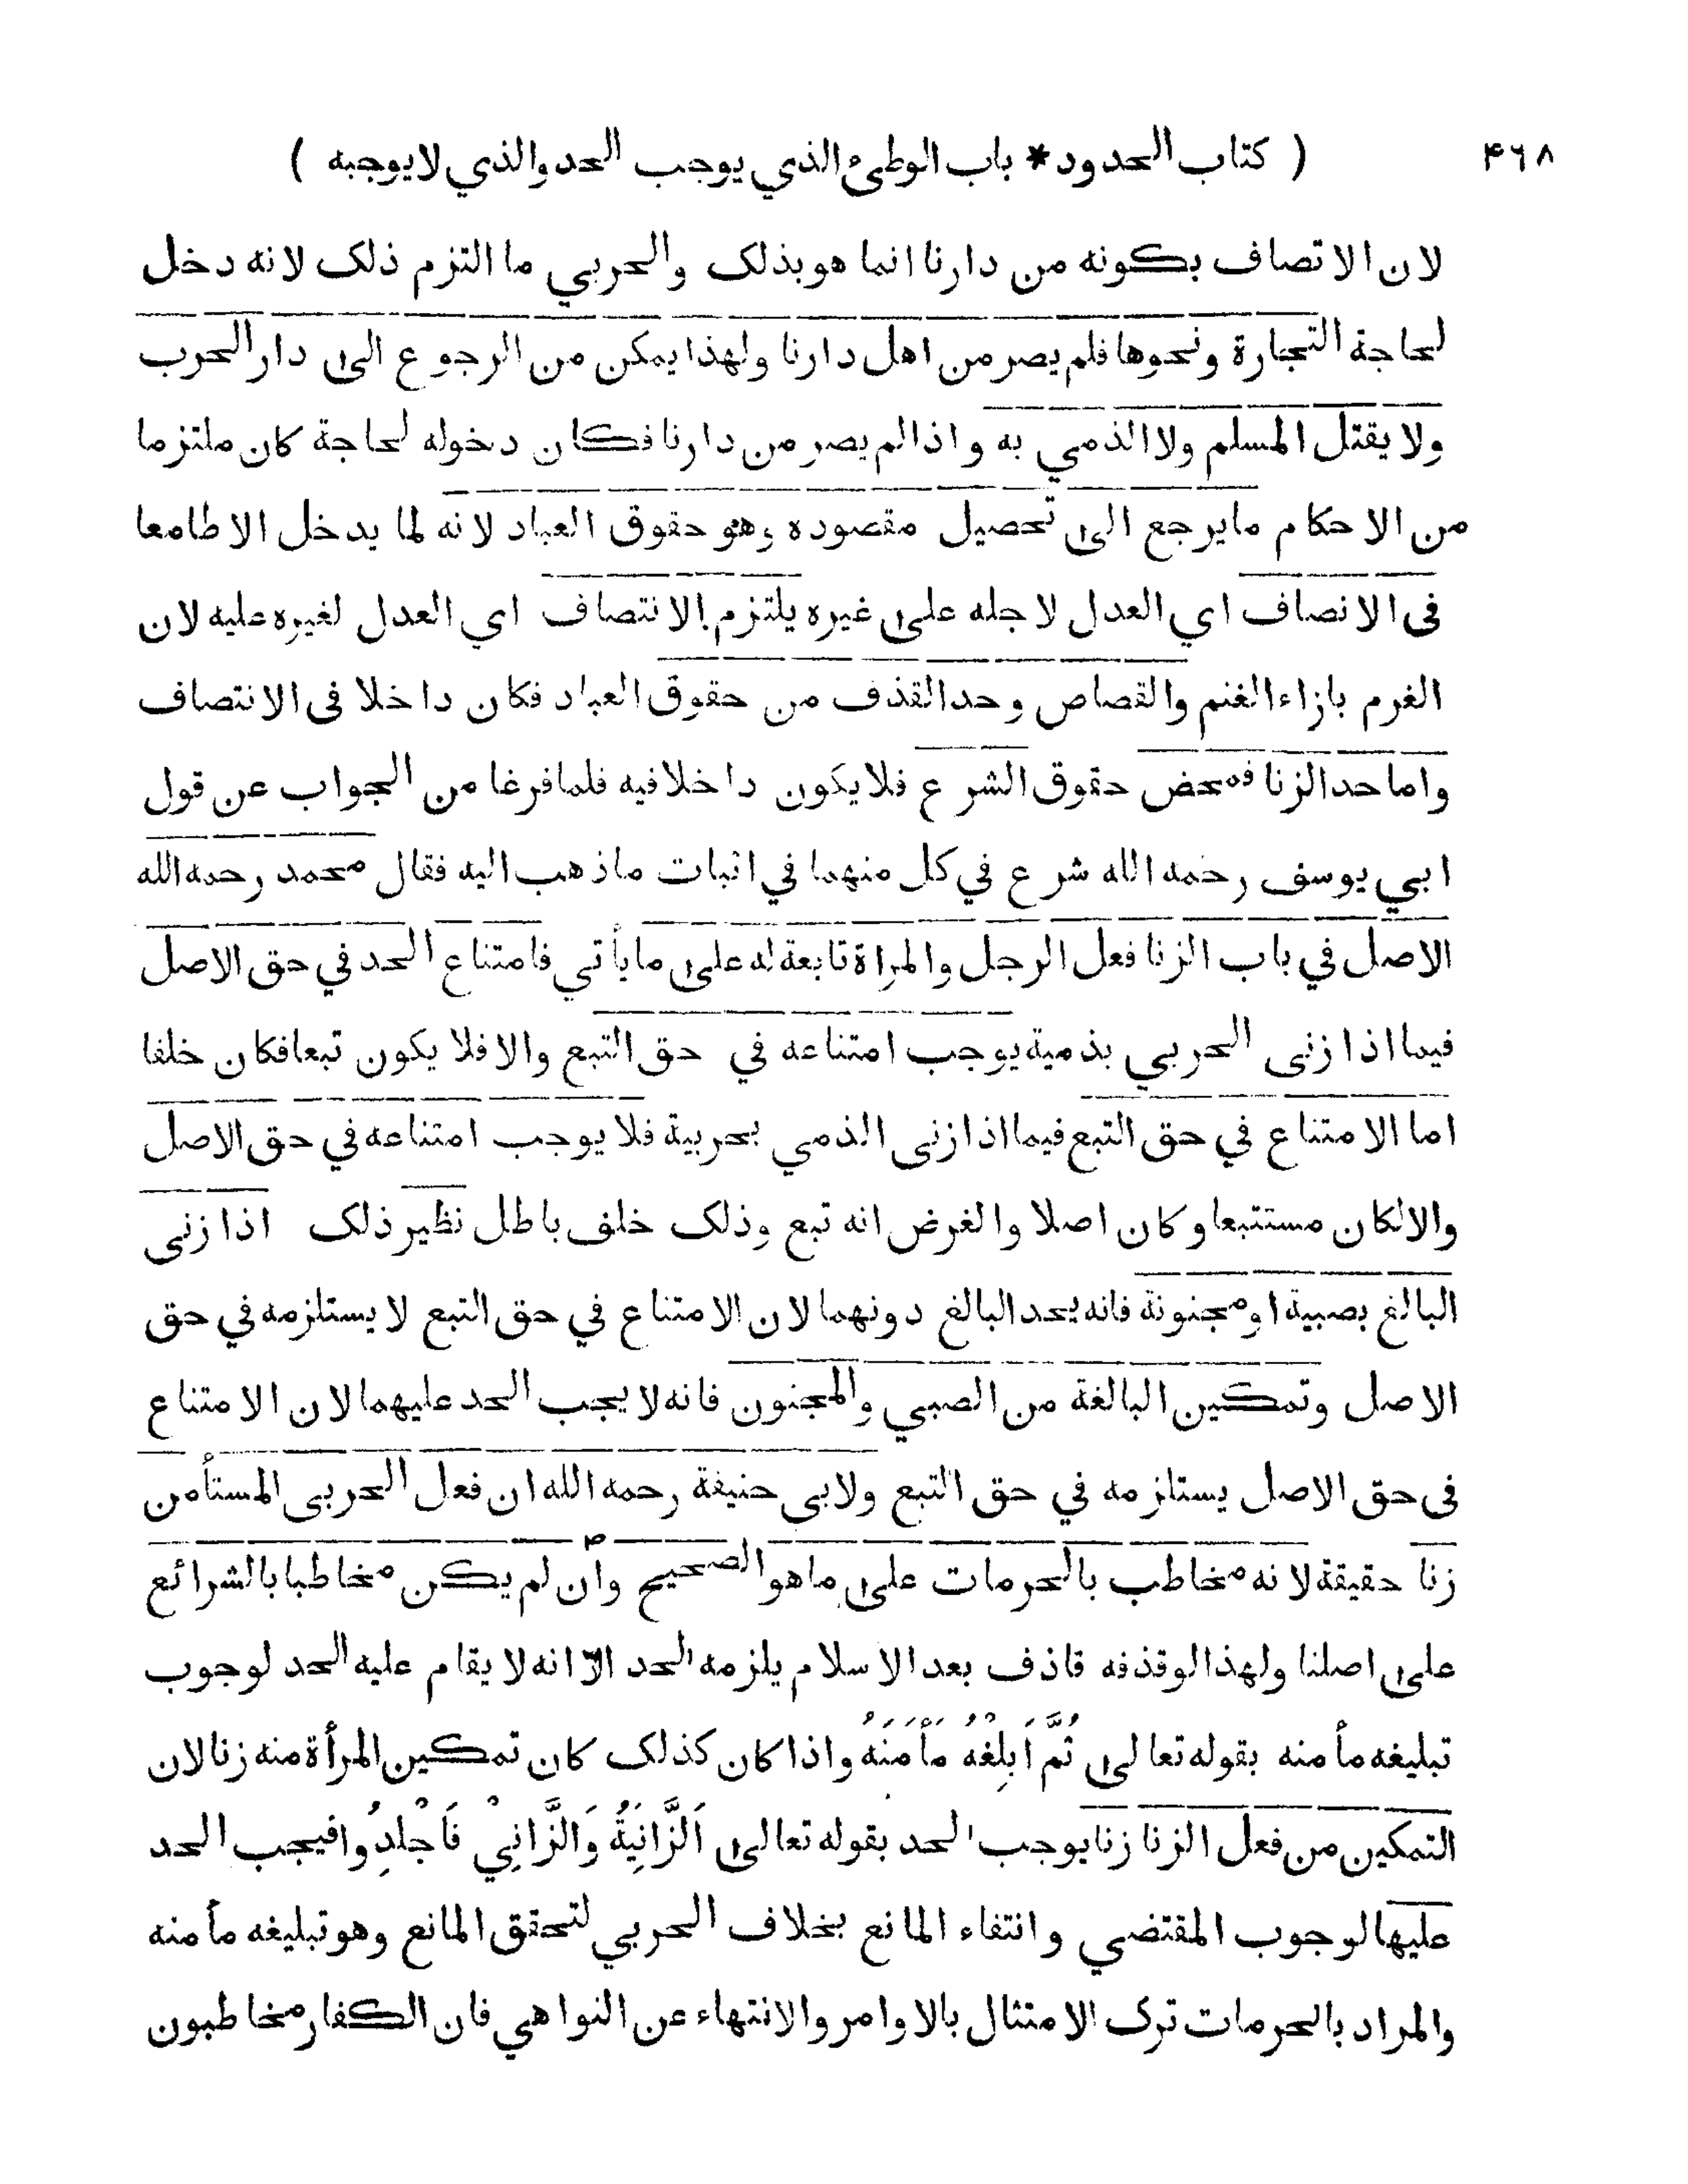 ۴۶۸ ( كتاب الحدود * باب الوطئ الذي يوجب الحد والذي لا يوجبه )
لان الاتصاف بكونه من دارنا انما هو بذلك والحربي ما التزم ذلك لانه دخل
لحاجة التجارة ونحوها فلم يصر من اهل دارنا ولهذا يمكن من الرجوع الى دار الحرب
ولا يقتل المسلم ولا الذمي به واذا لم يصر من دارنا فكان دخوله لحاجة كان ملتزما
من الاحكام ما يرجع الى تحصيل مقصوده وهو حقوق العباد لانه لما يدخل الا طامعا
فى الانصاف اي العدل لاجله على غيره يلتزم الانتصاف اي العدل لغيره عليه لان
الغرم بازاء الغنم والقصاص وحد القذف من حقوق العباد فكان داخلا فى الانتصاف
واما حد الزنا فمحض حقوق الشرع فلا يكون داخلا فيه فلما فرغا من الجواب عن قول
ابي يوسف رحمه الله شرع في كل منهما في اثبات ما ذهب اليه فقال محمد رحمه الله
الاصل في باب الزنا فعل الرجل والمراة تابعة له على ما يأتي فامتناع الحد في حق الاصل
فيما اذا زنى الحربي بذمية يوجب امتناعه في حق التبع والا فلا يكون تبعا فكان خلفا
اما الامتناع في حق التبع فيما اذا زنى الذمي بحربية فلا يوجب امتناعه في حق الاصل
والا لكان مستتبعا وكان اصلا والغرض انه تبع وذلك خلف باطل نظير ذلك اذا زنى
البالغ بصبية او مجنونة فانه يحد البالغ دونهما لان الامتناع في حق التبع لا يستلزمه في حق
الاصل وتمكين البالغة من الصبي والمجنون فانه لا يجب الحد عليهما لان الامتناع
فى حق الاصل يستلزمه في حق التبع ولابى حنيفة رحمه الله ان فعل الحربى المستأمن
زنا حقيقة لانه مخاطب بالحرمات على ما هو الصحيح وان لم يكن مخاطبا بالشرائع
على اصلنا ولهذا لو قذفه قاذف بعد الاسلام يلزمه الحد الّا انه لا يقام عليه الحد لوجوب
تبليغه مأمنه بقوله تعالى ثُمَّ اَبلِغْهُ مَأْمَنَهُ واذا كان كذلك كان تمكين المرأة منه زنا لان
التمكين من فعل الزنا زنا يوجب الحد بقوله تعالى اَلزَّانِيَةُ وَالزَّانِيْ فَاجْلِدُوا فيجب الحد
عليها لوجوب المقتضي وانتفاء المانع بخلاف الحربي لتحقق المانع وهو تبليغه مأمنه
والمراد بالحرمات ترك الامتثال بالاوامر والانتهاء عن النواهي فان الكفار مخاطبون